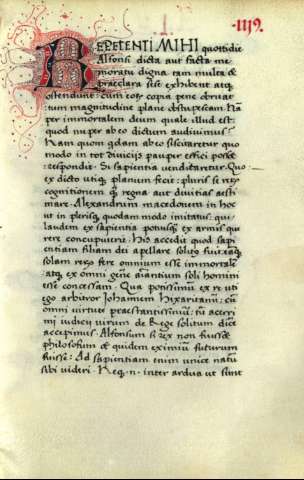 ·1119·
REPETENTI MIHI quottidie
Alfonsi dicta aut facta me
moratu digna tam multa &
praeclara sese exhibent atq
ostendunt: Eum ior copia pene obruar
tum magnitudine plane obstupescam. Na
per immortalem deum quale illud est:
quod nuper ab eo dictum audiuimus?
Nam quom qdam ab eo sciscitaretur quo
modo in tot diuitijs pauper effici posset
respondit: Si sapientia uenditaretur. Quo
ex dicto utiq planum fecit: pluris se rey
cognitionem q regna aut diuitias aesti
mare. Alexandrum macedonem in hoc
ut in plerisq quodam modo imitatus: qui
laudem ex sapientia potius q ex armis que
rere concupiuerit. His accedit quod sapi
entiam filiam dei apellare solitus fuit: eaq
solam rerum fere omnium esse immortale
atq ex omni genere animantium soli homini
esse concessam. Qua potissimum ex re uti
ego arbitror Johannem Hixaritanu: cu
omni uirtute praestantissimu: tu acerri
mi iudicij uirum de Rege solitum dice
accepimus. Alfonsum si rex non fuisset
philosofum & quidem eximiu futurum
fuisse: Ad sapientiam enim unice natu
sibi uideri. Req. n. inter ardua ut sunt